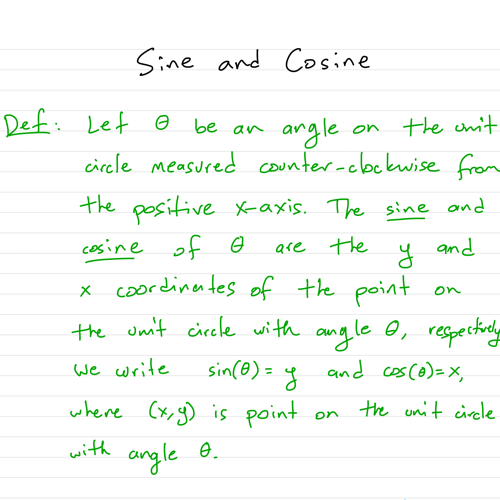 Sine and Cosine
Def: Let θ be an angle on the unit
circle measured counter-clockwise from
the positive x-axis. The sine and
cosine of θ are the y and
x coordinates of the point on
the unit circle with angle θ, respectively
We write sin(θ) = y and cos(θ) = x,
where (x,y) is point on the unit circle
with angle θ.